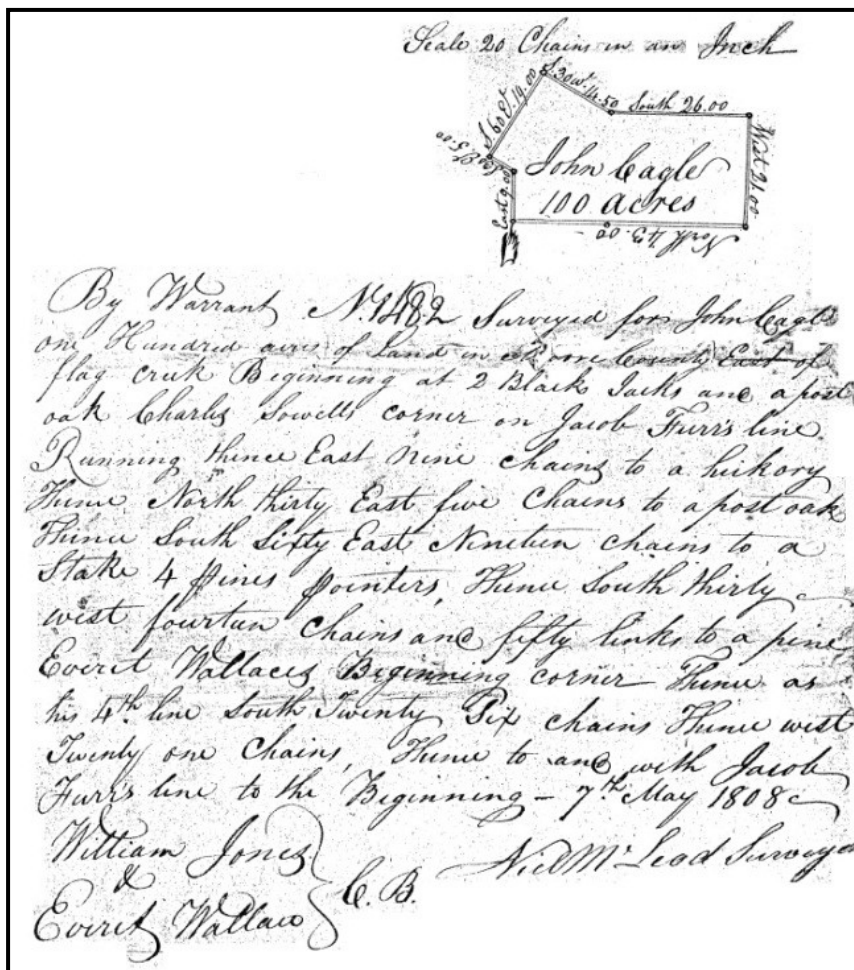 Scale 20 Chains in an Inch
S. 30 W. 14.50
South 26.00
S. 60 Et. 19.00
Et. 5.00
East 9.00
West 21.00
North 43.00
John Cagle
100 acres
By Warrant No. 1482 Surveyed for John Cagle
one Hundred acres of Land in County East of
flag creek Beginning at 2 Black Jacks and a post
oak Charles Sowells corner on Jacob Furr's line
Running thence East nine chains to a hickory
Thence North thirty East five Chains to a post oak
Thence South Sixty East Nineteen chains to a
Stake 4 pines pointers, Thence South thirty
west fourteen Chains and fifty links to a pine
Everet Wallaces Beginning corner Thence as
his 4th line South Twenty Six chains Thence west
Twenty one Chains, Thence to and with Jacob
Furr's line to the Beginning – 7th May 1808
William Jones
&
Everet Wallace
C. B.
Neil McLeod Surveyor